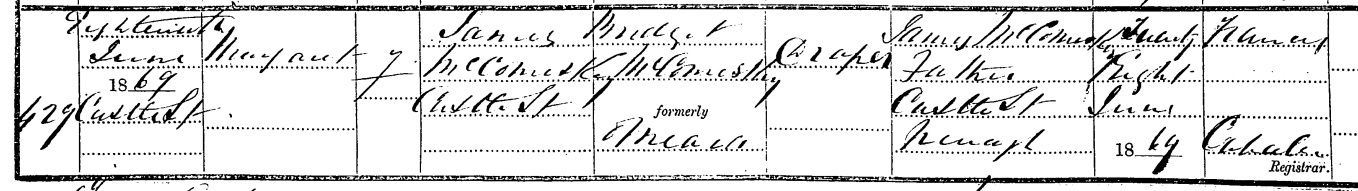 429
Eighteenth
June
1869
Castle St
Margaret
James
McComeskey
Castle St
Bridget
McComeskey
formerly
Meara
Draper
James McComeskey
Father
Castle St
Nenagh
Twenty
Eight
June
1869
Francis
Registrar.